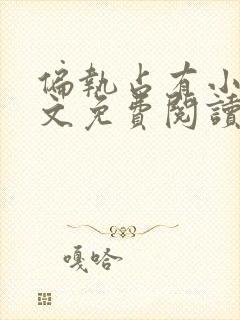 偏執占有小
文免費閱讀
嘎哈